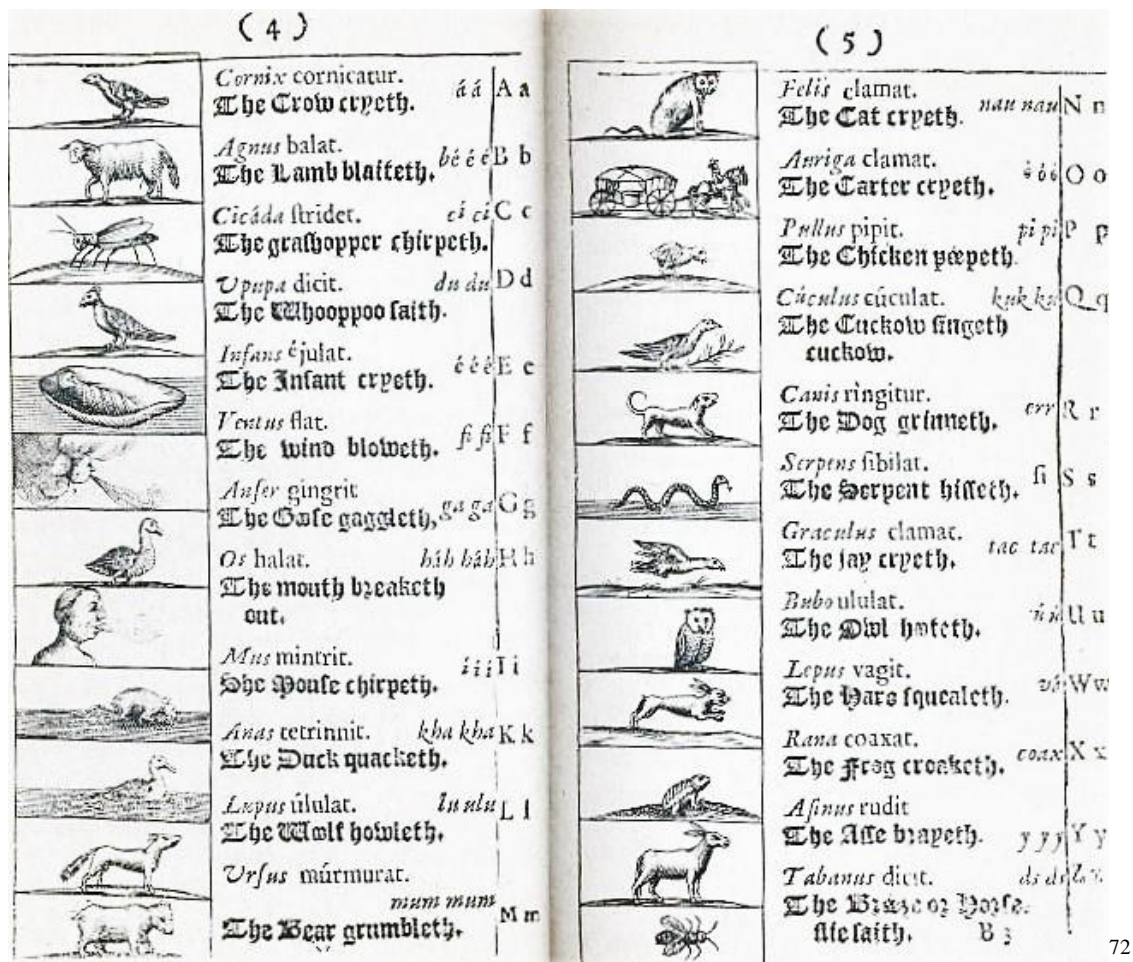 (4)
Cornix cornicatur. áá A a
The Crow cryeth.
Agnus balat. bé é é B b
The Lamb blaiteth.
Cicáda ſtridet. cí cí C c
The graſhopper chirpeth.
Upupa dicit. du du D d
The Whooppoo ſaith.
Infans éjulat. é é é E e
The Infant cryeth.
Ventus flat. fi fi F f
The wind bloweth.
Anſer gingrit ga ga G g
The Gooſe gaggleth,
Os halat. háh háh H h
The mouth breaketh
out.
Mus mintrit. í í í I i
The Mouſe chirpeth.
Anas tetrinnit. kha kha K k
The Duck quacketh.
Lupus úlulat. lu ulu L l
The Wolf howleth.
Urſus múrmurat.
mum mum M m
The Bear grumbleth.
(5)
Felis clamat. nau nau N n
The Cat cryeth.
Auriga clamat. ó ó ó O o
The Carter cryeth.
Pullus pipit. pi pi P p
The Chicken peepeth.
Cúculus cúculat. kuk ku Q q
The Cuckow ſingeth
cuckow.
Canis ringitur. err R r
The Dog grinneth.
Serpens ſibilat. ſi S s
The Serpent hiſſeth.
Graculus clamat. tac tac T t
The Jay cryeth.
Bubo ululat. ú ú U u
The Owl hooteth.
Lepus vagit. vá W w
The Hare ſquealeth.
Rana coaxat. coax X x
The Frog croaketh.
Aſinus rudit y y y Y y
The Aſſe brayeth.
Tabanus dicit. ds ds Z z
The Breeze or Horſe-
flie ſaith. B 3
72